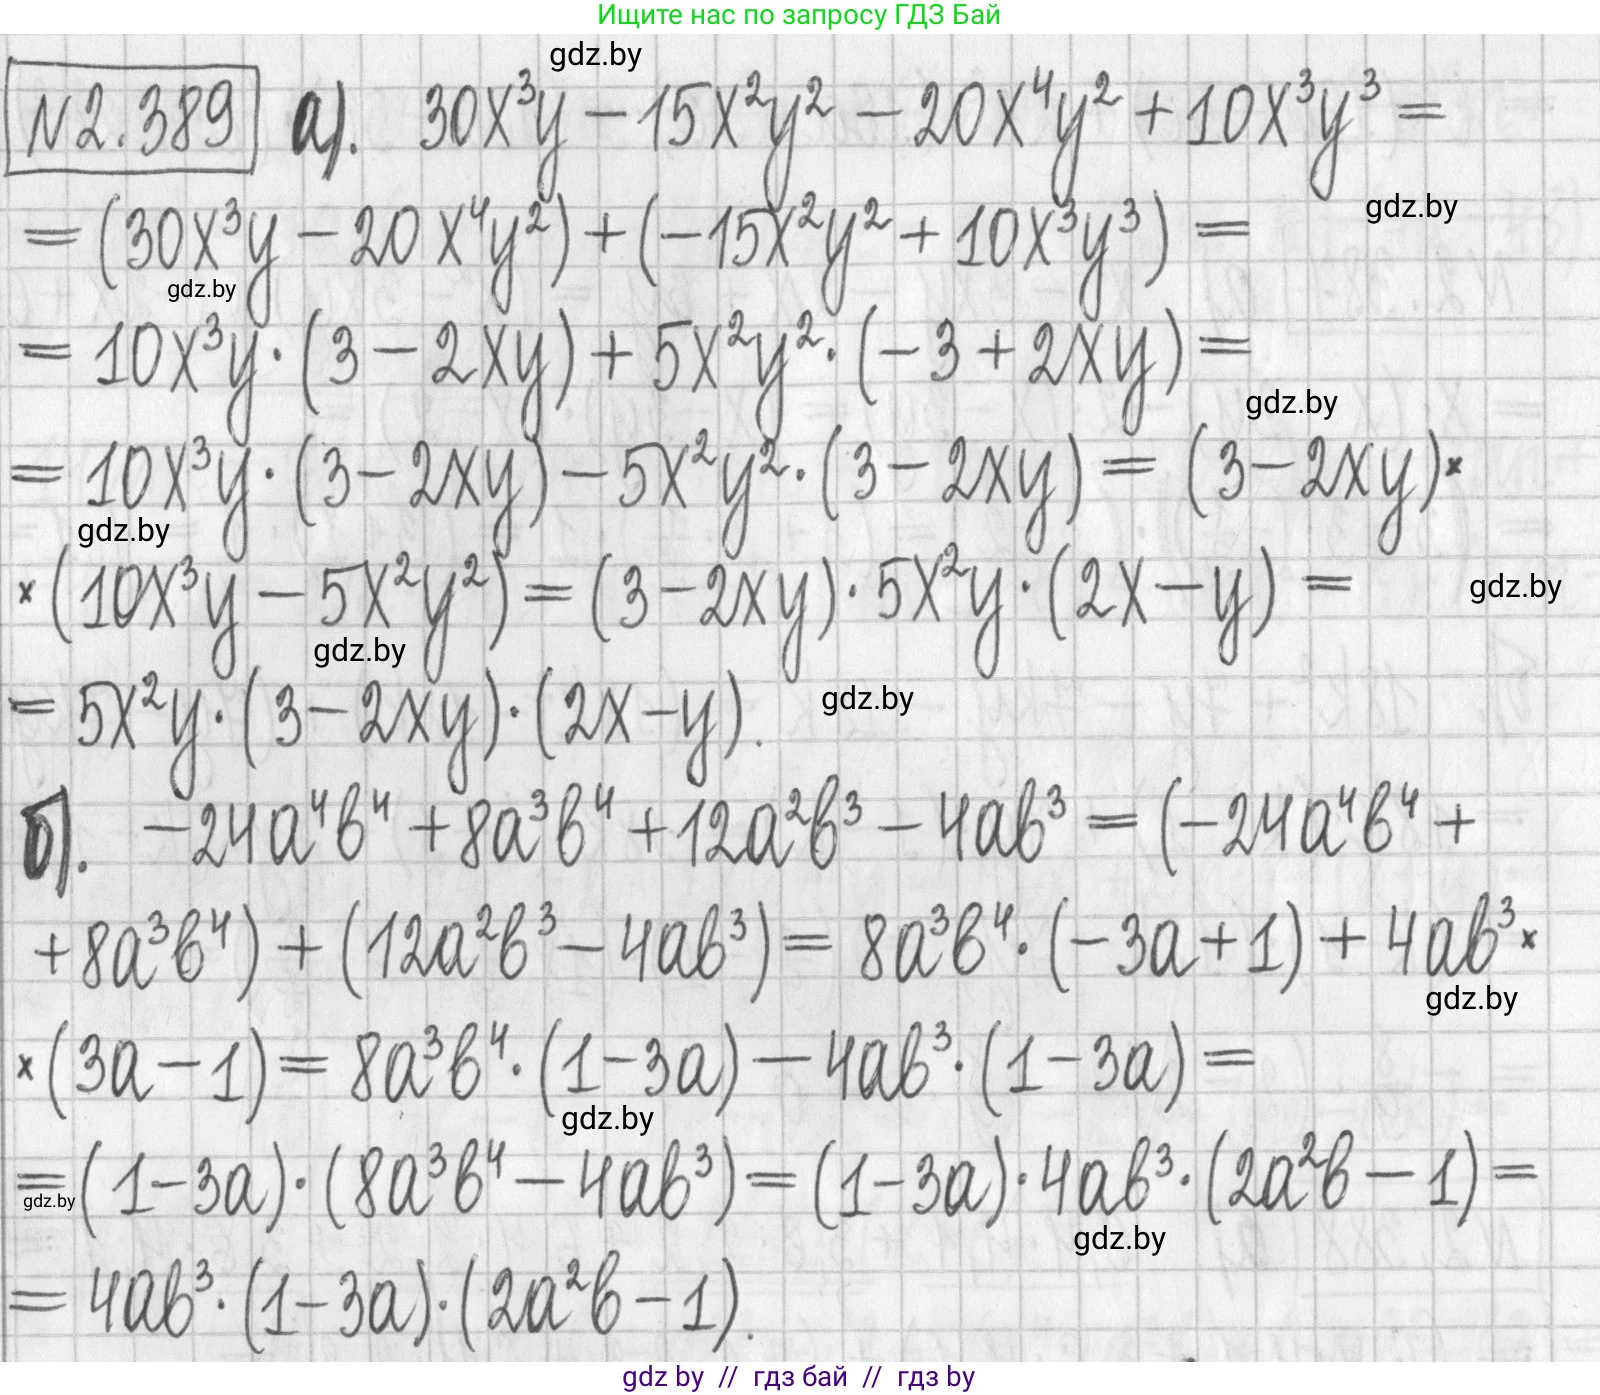 Ищите нас по запросу ГДЗ Бай
gdz.by
№2.389 а). 30x³y − 15x²y² − 20x⁴y² + 10x³y³ =
= (30x³y − 20x⁴y²) + (−15x²y² + 10x³y³) =
gdz.by
gdz.by
= 10x³y · (3 − 2xy) + 5x²y² · (−3 + 2xy) =
gdz.by
= 10x³y · (3 − 2xy) − 5x²y² · (3 − 2xy) = (3 − 2xy) ×
gdz.by
× (10x³y − 5x²y²) = (3 − 2xy) · 5x²y · (2x − y) =
gdz.by
gdz.by
= 5x²y · (3 − 2xy) · (2x − y).
gdz.by
б). −24a⁴b⁴ + 8a³b⁴ + 12a²b³ − 4ab³ = (−24a⁴b⁴ +
+ 8a³b⁴) + (12a²b³ − 4ab³) = 8a³b⁴ · (−3a + 1) + 4ab³ ×
gdz.by
× (3a − 1) = 8a³b⁴ · (1 − 3a) − 4ab³ · (1 − 3a) =
gdz.by
= (1 − 3a) · (8a³b⁴ − 4ab³) = (1 − 3a) · 4ab³ · (2a²b − 1) =
gdz.by
gdz.by
= 4ab³ · (1 − 3a) · (2a²b − 1).
gdz by // гдз бай // гдз by